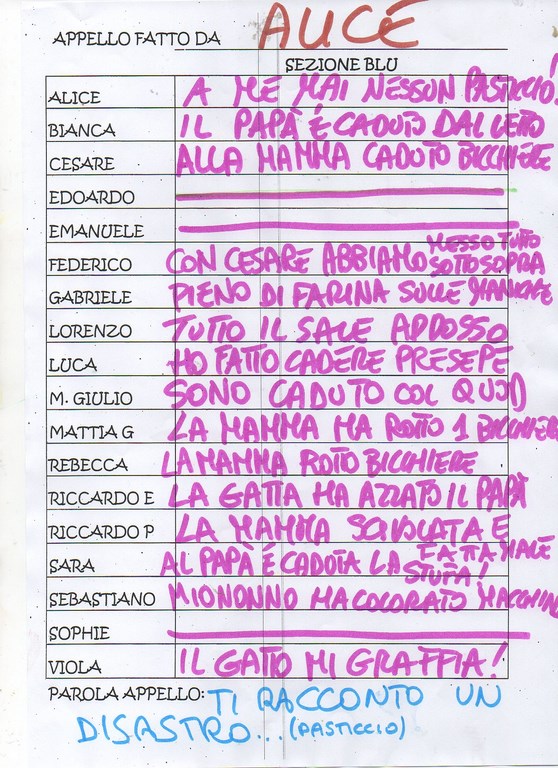 APPELLO FATTO DA ALICE
SEZIONE BLU
ALICE A ME MAI NESSUN PASTICCIO!
BIANCA IL PAPÀ É CADUTO DAL LETTO
CESARE ALLA MAMMA CADUTO BICCHIERE
EDOARDO
EMANUELE
FEDERICO CON CESARE ABBIAMO MESSO TUTTO SOTTOSOPRA
GABRIELE PIENO DI FARINA SULLE MANICHE
LORENZO TUTTO IL SALE ADDOSSO
LUCA HO FATTO CADERE PRESEPE
M. GIULIO SONO CADUTO COL QUOD
MATTIA G LA MAMMA HA ROTTO 1 BICCHIERE
REBECCA LA MAMMA ROTTO BICCHIERE
RICCARDO E LA GATTA HA AZZATO IL PAPÀ
RICCARDO P LA MAMMA SCIVOLATA E FATTA MALE
SARA AL PAPÀ É CADUTA LA STUFA!
SEBASTIANO MIO NONNO HA COLORATO MACCHINA
SOPHIE
VIOLA IL GATTO MI GRAFFIA!
PAROLA APPELLO: TI RACCONTO UN
DISASTRO... (PASTICCIO)